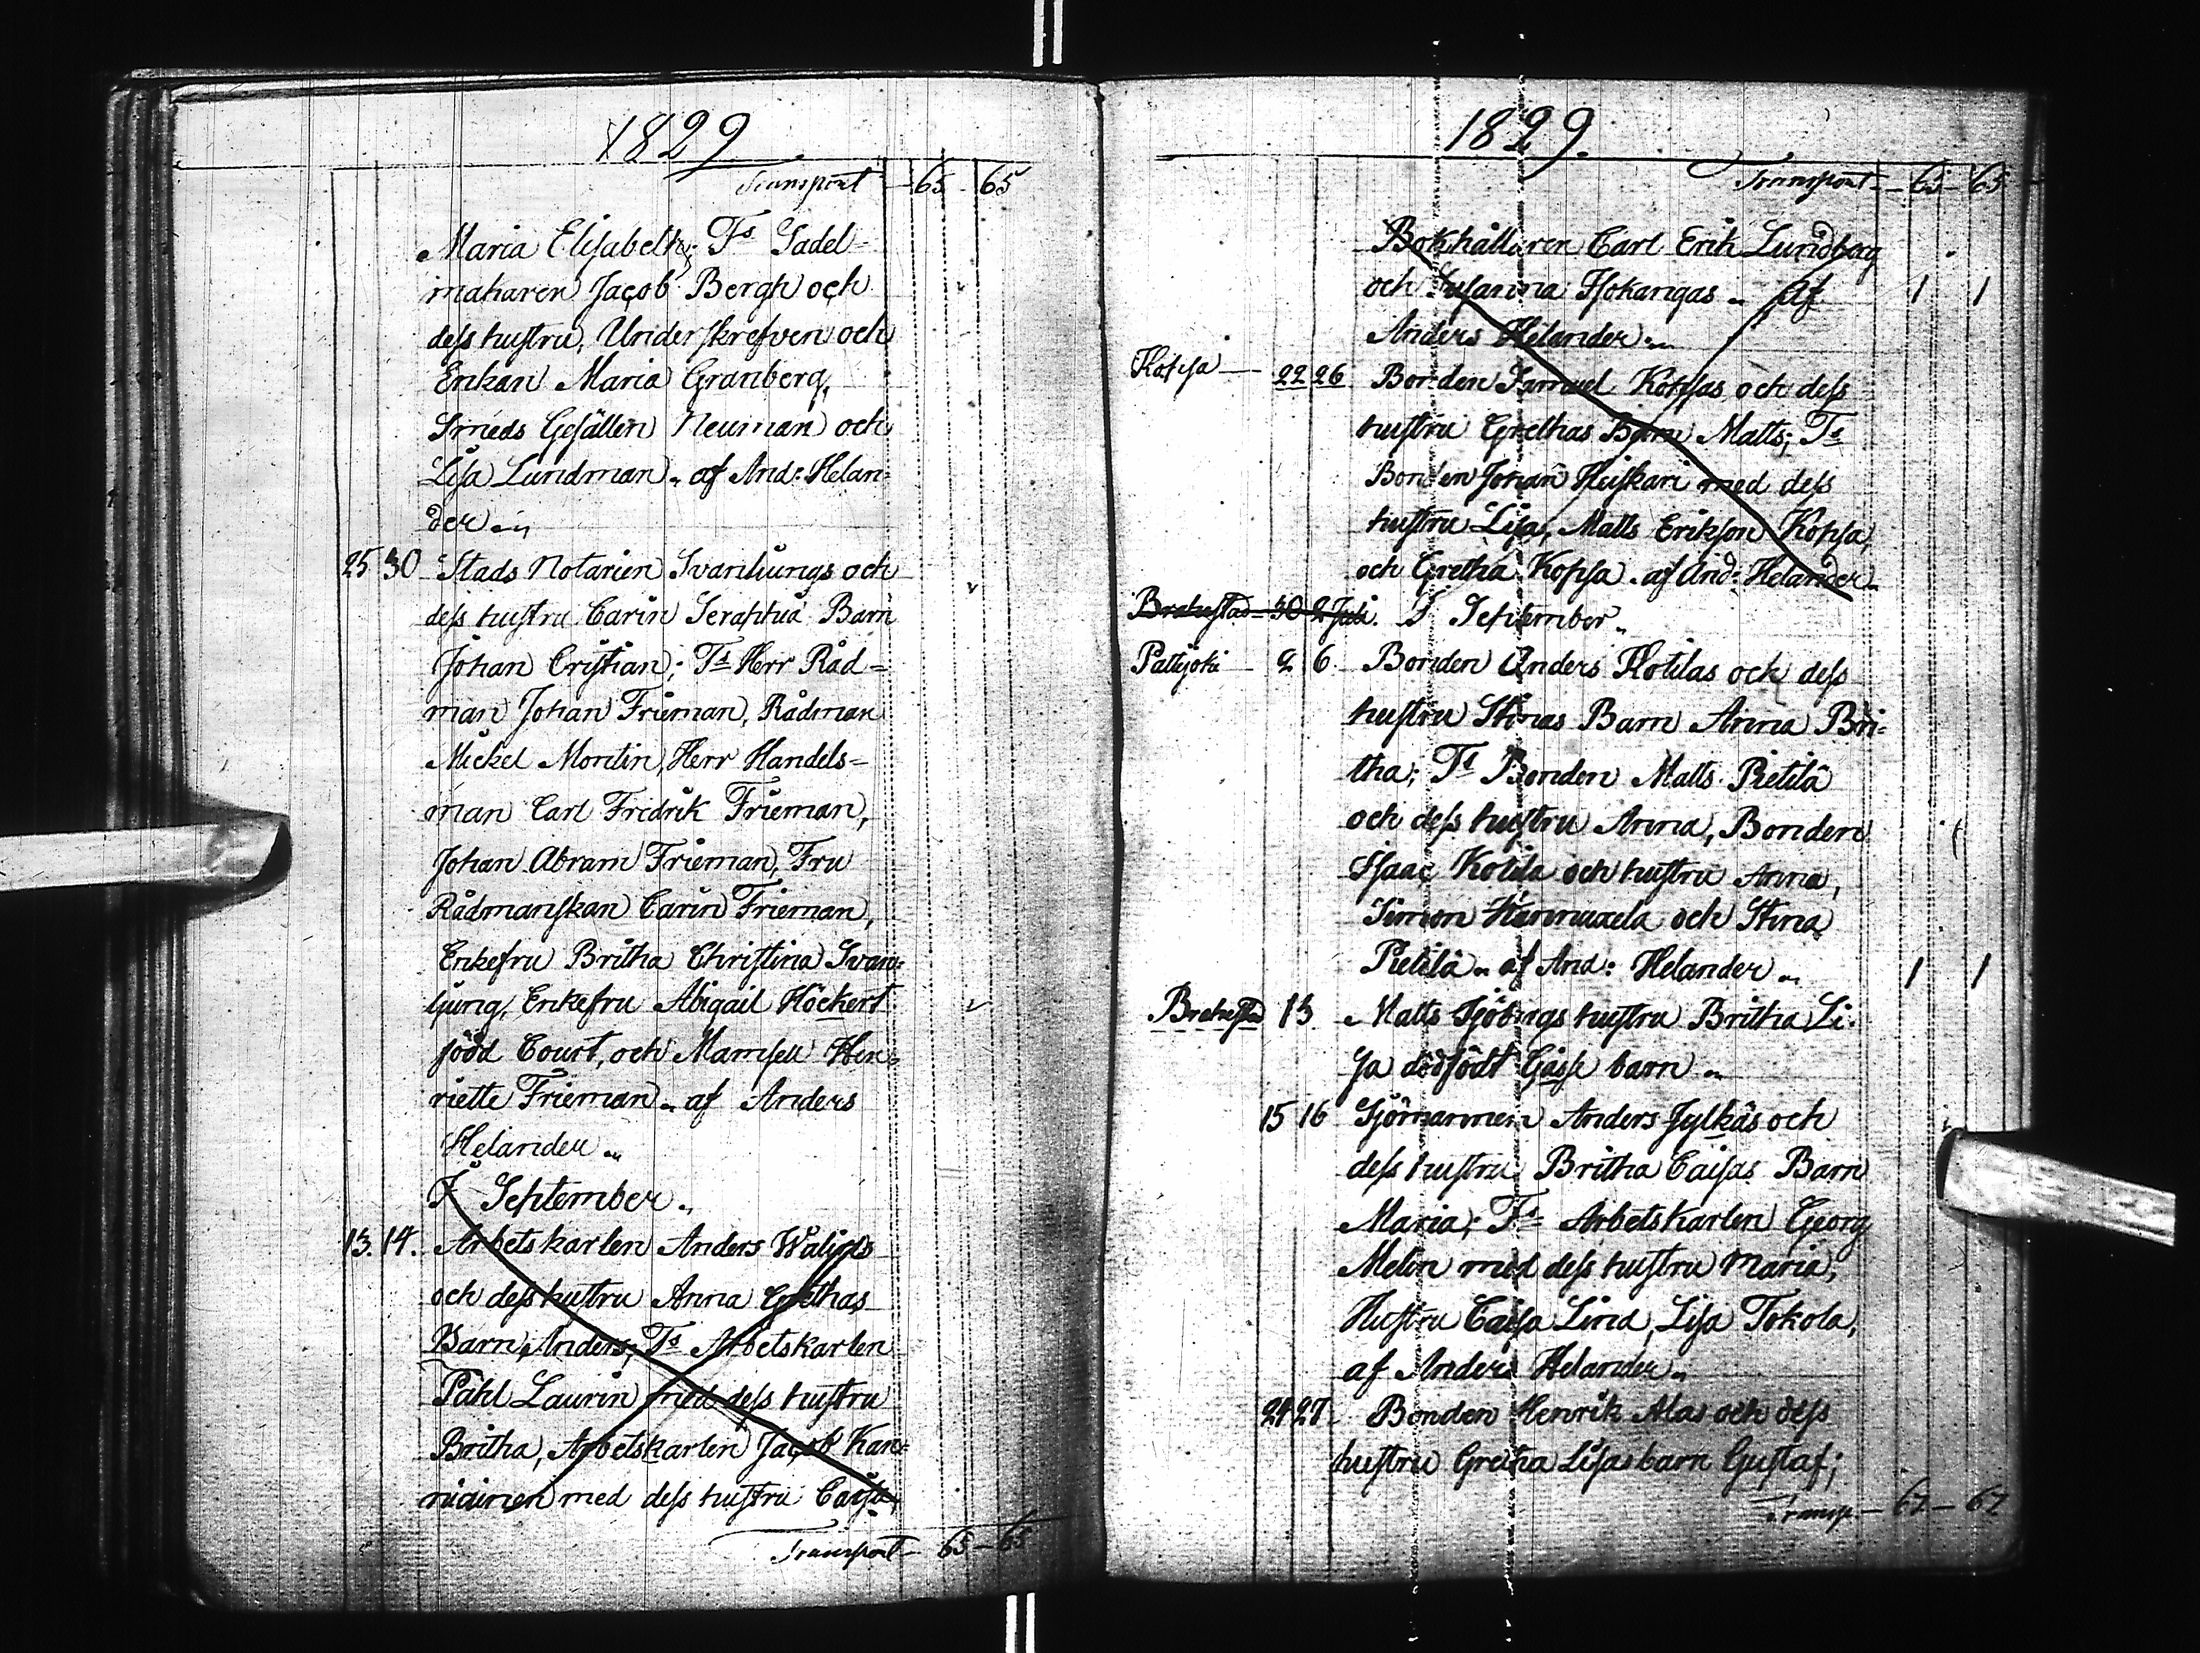 1829
Transport 65 65
Maria Elisabeth; Ts Sadel-
makaren Jacob Bergh och
dess hustru, Underskrefven och
Enkan Maria Granberg,
Smeds Gesällen Neuman och
Lisa Lundman. af And: Helan-
der
25 30 Stads Notarien Svanljungs och
dess hustru Carin Seraphia Barn
Johan Cristian; Ts Herr Råd-
man Johan Frieman, Rådman
Mickel Montin, Herr Handels-
man Carl Fredrik Frieman,
Johan Abram Frieman, Fru
Rådmanskan Carin Frieman,
Enkefru Britha Christina Svan-
ljung, Enkefru Abigail Höckert
född Court, och Mamsell Hen-
riette Frieman. af Anders
Helander
I September
13. 14. Arbetskarlen Anders
och dess hustru Anna Grethas
Barn Anders; Ts Arbetskarlen
Påhl Laurin med dess hustru
Britha, Arbetskarlen Jacob Kan-
niainen med dess hustru Caisa,
Transport 65 65
1829.
Transport 65 65
Bokhållaren Carl Erik Lundberg
och Susanna . Af 1 1
Anders Helander
Kopsa 22 26 Bonden Samuel Kopsas och dess
hustru Grethas Barn Matts; Ts
Bonden Johan Huiskari med dess
hustru Lisa, Matts Erikson Kopsa,
och Gretha Kopsa. af And: Helander
Brahestad 30 2 Juli. I September
Pattijoki 2 6. Bonden Anders Kotilas och dess
hustru Stinas Barn Anna Bri-
tha; Ts Bonden Matts Pietilä
och dess hustru Anna, Bonden
Isaac Kotila och hustru Anna,
Simon och Stina
Pietilä. af And: Helander 1 1
Brahestad 13 Matts Sjöbergs hustru Britha Li-
sa dödfödt Gåsse barn
15 16 Sjömannen Anders Jylkäs och
dess hustru Britha Caisas Barn
Maria; Ts Arbetskarlen Georg
Melin med dess hustru Maria,
Hustru Caisa Lind, Lisa Tokola,
af Anders Helander
21 27 Bonden Henrik Alas och dess
hustru Gretha Lisas barn Gustaf;
Transp 67 67